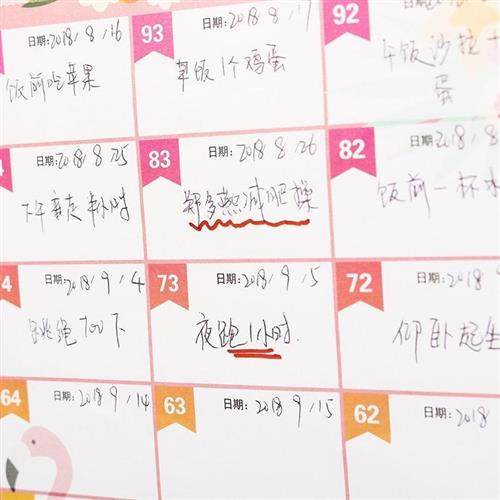 日期:2018/8/16
饭前吃苹果
93
日期:2018/8/17
早饭1个鸡蛋
92
日期:2018
午饭沙拉
蛋
日期:2018 8 25
下午竞走半小时
83
日期:2018 8 26
郑多燕减肥操
82
日期:2018/8
饭前一杯水
74
日期:2018/9/4
跳绳700下
73
日期:2018/9/5
夜跑1小时.
72
日期:2018
仰卧起坐
64
日期:2018 9/14
63
日期:2018 9/15
62
日期:2018